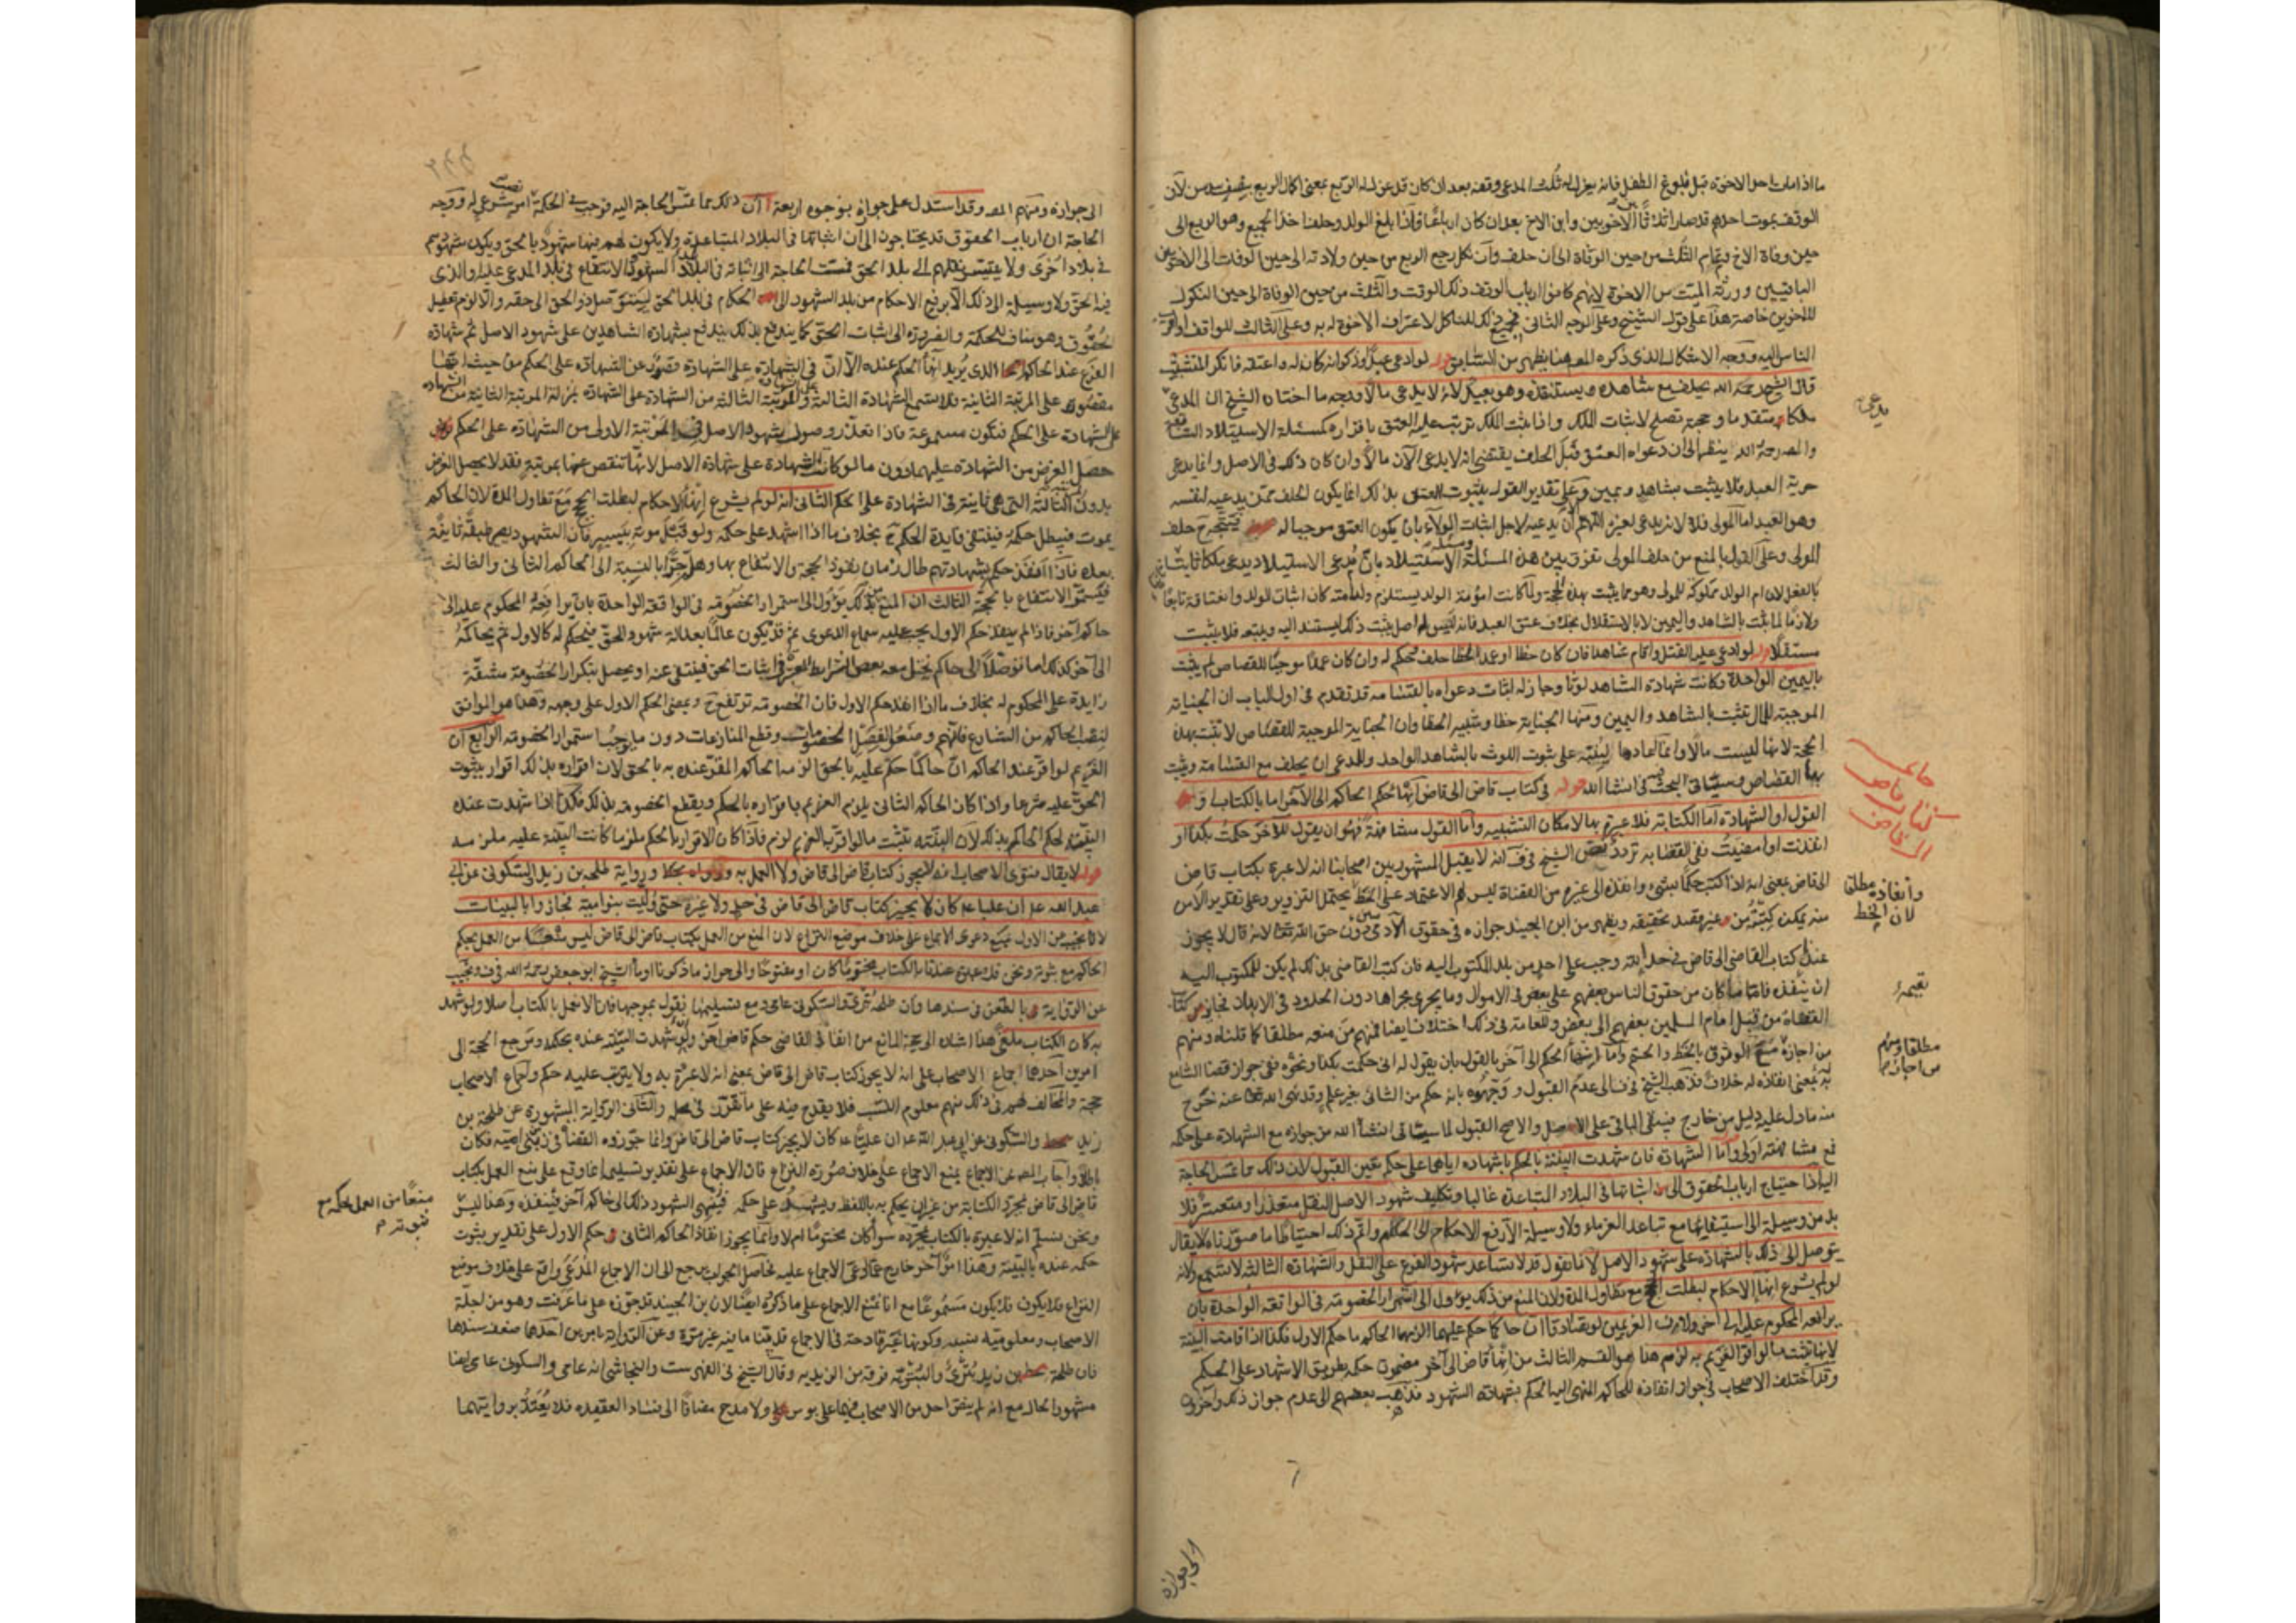 ما اذا مات احد الاخوة قبل بلوغ الطفل فانه يعزل له ثلث المدعى وقفه بعد ان كان قد عزل له الربع بمعنى اكمال الربع بنصف سدس لان
الوقف بموت احدهم قد صار اثلاثا بين الاخوين وابن الاخ بعد ان كان ارباعا فاذا بلغ الولد وحلف اخذ الجميع وهو الربع الى
حين وفاة الاخ وتمام الثلث من حين الوفاة الى ان حلف وان نكل رجع الربع من حين ولادته الى حين الوفات الى الاخوين
الباقيين وورثة الميت من الاخوة لانهم كانوا ارباب الوقف ذلك الوقت والثلث من حين الوفاة الى حين النكول
للاخوين خاصة هذا على قول الشيخ وعلى الوجه الثاني ذلك للناكل لاعتراف الاخوة له به وعلى الثالث للواقف او اقرب
الناس اليه ووجه الاشكال الذي ذكره المصـ هنا يظهر من السابق قوله لو ادعى عبدا وذكر انه كان له واعتقه فانكر المتشبث
قال الشيخ رحمة الله يحلف مع شاهده ويستنقذه وهو بعيد لانه لا يدعي مالا وجه ما اختاره الشيخ ان المدعي
يدعي
ملكا متقدما وحجته تصلح لاثبات الملك واذا ثبت الملك ترتب عليه العتق باقراره كمسئلة الاستيلاد السابقة
والمصـ رحمة الله ينظر الى ان دعواه العتق قبل الحلف يقتضي انه لا يدعي الآن مالا وان كان ذلك في الاصل وانما يدعي
حرية العبد فلا يثبت بشاهد ويمين وعلى تقدير القول بثبوت العتق بذلك انما يكون الحلف ممن يدعيه لنفسه
وهو العبد اما المولى فلا لانه يدعي لغيره اللهم ان يدعيه لاجل اثبات الولاء بان يكون العتق موجبا له فيتجه ح حلف
المولى وعلى القول بالمنع من حلف المولى نفرق بين هذه المسئلة ومسئلة الاستيلاد بان مدعي الاستيلاد يدعي ملكا ثابتا
بالفعل لان ام الولد مملوكة للمولى وهو مما يثبت بهذه الحجة ولما كانت امومة الولد يستلزم ولادته كان اثبات الولد وانعتاقه تابعا
ولازما لما يثبت بالشاهد واليمين لا بالاستقلال بخلاف عتق العبد فانه ليس له اصل يثبت ذلك ليستند اليه ويتبعه فلا يثبت
مستقلا قوله لو ادعى عليه القتل واقام شاهدا فان كان خطا او عمد الخطا حلف وحكم له وان كان عمدا موجبا للقصاص لم يثبت
باليمين الواحدة وكانت شهادة الشاهد لوثا وجاز له اثبات دعواه بالقسامة قد تقدم في اول الباب ان الجناية
الموجبة للمال تثبت بالشاهد واليمين ومنها الجناية خطا وشبيه الخطا وان الجناية الموجبة للقصاص لا تثبت بهذه
الحجة لانها ليست مالا وانما اعادها لينبه على ثبوت اللوث بالشاهد الواحد وللمدعي ان يحلف مع القسامة ويثبت
بها القصاص وسياتي البحث فيه انشا الله قوله في كتاب قاض الى قاض انهاء حكم الحاكم الى الآخر اما بالكتابة او
خاتمة
كتاب قاض
الى قاض
القول او الشهادة اما الكتابة فلا عبرة بها لامكان التشبيه واما القول مشافهة فهو ان يقول للآخر حكمت بكذا او
انفذت او امضيت ففي القضا به تردد نص الشيخ في ف انه لا يقبل المشهور بين اصحابنا انه لا عبرة بكتاب قاض
الى قاض بمعنى انه اذا كتب حكما بشيء وانفذه الى غيره من القضاة ليس لهم الاعتماد على الخط يحتمل التزوير وعلى تقدير الامن
وانفاذه مطلقا
لان الخط
منه يمكن كتبه من غير قصد تحقيقه ويظهر من ابن الجنيد جوازه في حقوق الآدميين دون حق الله تعالى لانه قال لا يجوز
عندنا كتاب القاضي الى قاض في حد لله وجب على احد من بلد المكتوب اليه فان كتب القاضي بذلك لم يكن للمكتوب اليه
ان ينفذه فاما ما كان من حقوق الناس بعضهم على بعض في الاموال وما يجري مجراها دون الحدود في الابدان فجائز كتاب
القضاة من قبل امام المسلمين بعضهم الى بعض وللعامة في ذلك اختلاف ايضا فمنهم من منعه مطلقا كما قلناه ومنهم
مطلقا ومنهم
من اجازه
من اجازه مع الوثوق بالخط والختم واما انهاء الحكم الى آخر بالقول بان يقول له اني حكمت بكذا ونحوه ففي جواز قضا السامع
به بمعنى انفاذه له خلاف فذهب الشيخ في ف الى عدم القبول ووجهوه بانه حكم من الثاني بغير علم وقد نهى الله تعالى عنه خرج
منه ما دل عليه دليل من خارج فيبقى الباقي على الاصل والاصح القبول لما سياتي انشا الله من جوازه مع الشهادة على حكمه
فمع مشافهته اولى واما الشهادة فان شهدت البينة بالحكم باشهاده اياها على حكمه تعين القبول لان ذلك مما تمس الحاجة
اليه اذا احتياج ارباب الحقوق الى اثباتها في البلاد المتباعدة غالبا وتكليف شهود الاصل التنقل متعذر او متعسر فلا
بد من وسيلة الى استيفائها مع تباعد الغرماء ولا وسيلة الا رفع الاحكام الى الحكام واتم ذلك احتياطا ما صورناه لا يقال
يتوصل الى ذلك بالشهادة على شهود الاصل لانا نقول قد لا يساعد شهود الفرع على النقل والشهادة الثالثة لا تسمع ولانه
لو لم يشرع انهاء الاحكام لبطلت الحجج مع تطاول المدة ولان المنع من ذلك يؤول الى استمرار الخصومة في الواقعة الواحدة بان
يرافعه المحكوم عليه الى آخر ولان الغريمين لو تصادقا ان حاكما حكم عليهما الزمهما الحاكم ما حكم الاول فكذا اذا قامت البينة
لانها تثبت ما لو اقر الغريم به لزم هذا هو القسم الثالث من انهاء قاض الى آخر مضمون حكمه بطريق الاشهاد على الحكم
وقد اختلف الاصحاب في جواز انفاذه للحاكم المنهى اليه الحكم بشهادة الشهود فذهب بعضهم الى عدم جواز ذلك وآخرون
الى جوازه
الى جوازه ومنهم المصـ وقد استدل على جوازه بوجوه اربعة آ ان ذلك مما تمس الحاجة اليه فوجب في الحكمة نصب امر شرعي له ووجه
الحاجة ان ارباب الحقوق قد يحتاجون الى ان اثباتها في البلاد المتباعدة ولا يكون لهم فيها شهود بالحق ويكون شهودهم
في بلاد اخرى ولا يتيسر نقلهم الى بلد الحق فمست الحاجة الى اثباته في بلاد الشهود والانتفاع في بلد المدعى عليه او الذي
فيه الحق ولا وسيلة الى ذلك الا برفع الاحكام من بلد الشهود الى الحكام في بلد الحق ليتوصل ذو الحق الى حقه والا لزم تعطيل
الحقوق وهو مناف للحكمة والضرورة الى اثبات الحق كما يندفع بذلك يندفع بشهادة الشاهدين على شهود الاصل ثم شهادة
الفرع عند الحاكم الذي يريد انهاء الحكم عنده الا ان في الشهادة على الشهادة قصور عن الشهادة على الحكم من حيث انها
مقصورة على المرتبة الثانية فلا تسمع الشهادة الثالثة والمرتبة الثالثة من الشهادة على الشهادة بمنزلة المرتبة الثانية من الشهادة
على الشهادة على الحكم فتكون مسموعة فاذا تعذر وصول شهود الاصل في المرتبة الاولى من الشهادة على الحكم
حصل الغرض من الشهادة عليهما دون ما لو كانت الشهادة على شهادة الاصل لانها تنقص عنها بمرتبة فقد لا يحصل الغرض
بدون الثالثة التي هي ثانية في الشهادة على الحكم الثاني انه لو لم يشرع انهاء الاحكام لبطلت الحجج مع تطاول المدة لان الحاكم
يموت فيبطل حكمه فينتفي فايدة الحكم ح بخلاف ما اذا اشهد على حكمه ولو قبل موته بيسير فان الشهود يصير طبقة ثانية
بعده فاذا انفذ حكم بشهادتهم طال زمان نفوذ الحجة والانتفاع بها وهلم جرا بالنسبة الى الحاكم الثاني والثالث
فيستمر الانتفاع بالحجة الثالث ان المنع من ذلك يؤول الى استمرار الخصومة في الواقعة الواحدة بان يرافعه المحكوم عليه الى
حاكم آخر فاذا لم ينفذ حكم الاول يجب عليه سماع الدعوى ثم قد يكون عالما بعدالة شهود الحق فيحكم له كالاول ثم يحاكمه
الى آخر كذلك اما توصلا الى حاكم يختل معه بعض الشرايط المعتبرة في اثبات الحق فينتفي عنه او يحصل بتكرار الخصومة مشقة
زايدة على المحكوم له بخلاف ما اذا انفذ حكم الاول فان الخصومة ترتفع ح ويمضي الحكم الاول على وجهه وهذا هو الموافق
لنصب الحاكم من الشارع فانهم وضعوا لفصل الخصومات وقطع المنازعات دون ما يوجب استمرار الخصومة الرابع ان
الغريم لو اقر عند الحاكم ان حاكما حكم عليه بالحق الزمه الحاكم المقر عنده به بالحق لان اقراره بذلك اقرار بثبوت
الحق عليه شرعا واذا كان الحاكم الثاني يلزم الغريم باقراره بالحكم ويقطع الخصومة بذلك فكذا اذا شهدت عنده
البينة بحكم الحاكم بذلك لان البينة تثبت ما لو اقر به الغريم لزم فاذا كان الاقرار بالحكم ملزما كانت البينة عليه ملزمة
قوله لا يقال فتوى الاصحاب انه لا يجوز كتاب قاض الى قاض ولا العمل به ورواية طلحة بن زيد والسكوني عن ابي
عبد الله عـ ان عليا عـ كان لا يجيز كتاب قاض الى قاض في حد ولا غيره حتى وليت بنو امية فجازوا بالبينات
لانا نجيب عن الاول بمنع دعوى الاجماع على خلاف موضع النزاع لان المنع من العمل بكتاب قاض الى قاض ليس منعا من العمل بحكم
الحاكم مع ثبوته ونحن فلا عبرة عندنا بالكتاب مختوما كان او مفتوحا والى جواز ما ذكرنا اومأ الشيخ ابو جعفر رحمة الله في ف ونجيب
عن الرواية بالطعن في سندها فان طلحة بتري والسكوني عامي ومع تسليمها نقول بموجبها فانا لا نعمل بالكتاب اصلا ولو شهد
به كان الكتاب ملغى هذا اشارة الى حجة المانع من انفاذ القاضي حكم قاض آخر وان شهدت البينة عنده بحكمه ومرجع الحجة الى
امرين احدهما اجماع الاصحاب على انه لا يجوز كتاب قاض الى قاض بمعنى انه لا عبرة به ولا يترتب عليه حكم واجماع الاصحاب
حجة والمخالف لهم في ذلك منهم معلوم النسب فلا يقدح فيه على ما تقرر في محله والثاني الرواية المشهورة عن طلحة بن
زيد والسكوني عن ابي عبد الله عـ ان عليا عـ كان لا يجيز كتاب قاض الى قاض وانما جوزوه القضاة في زمن بني امية فكان
باطلا واجاب المصـ عن الاجماع بمنع الاجماع على خلاف صورة النزاع فان الاجماع على تقدير تسليمه انما وقع على منع العمل بكتاب
قاض الى قاض مجرد الكتابة من غير ان يحكم به باللفظ ويشهد على حكمه فينهي الشهود ذلك الى حاكم آخر فينفذه وهذا ليس
منعا من العمل بحكمه مع
ثبوته
ونحن نسلم انه لا عبرة بالكتاب بمجرده سواء كان مختوما ام لا وانما يجوز انفاذ الحاكم الثاني حكم الاول على تقدير ثبوت
حكمه عنده بالبينة وهذا امر آخر خارج عما ادعي الاجماع عليه فحاصل الجواب يرجع الى ان الاجماع المدعى واقع على خلاف موضع
النزاع فلا يكون مسموعا مع انا نمنع الاجماع على ما ذكره ايضا لان ابن الجنيد قد جوزه على ما عرفت وهو من جملة
الاصحاب ومعلومية نسبه وكونها غير قادحة في الاجماع قد بينا ما فيه غير مرة وعن الرواية بامرين احدهما ضعف سندها
فان طلحة بن زيد بتري والبترية فرقة من الزيدية وقال الشيخ في الفهرست والنجاشي انه عامي والسكوني عامي ايضا
مشهور الحال مع انه لم ينص احد من الاصحاب فيهما على توثيق ولا مدح مضافا الى فساد العقيدة فلا يعتد بروايتهما